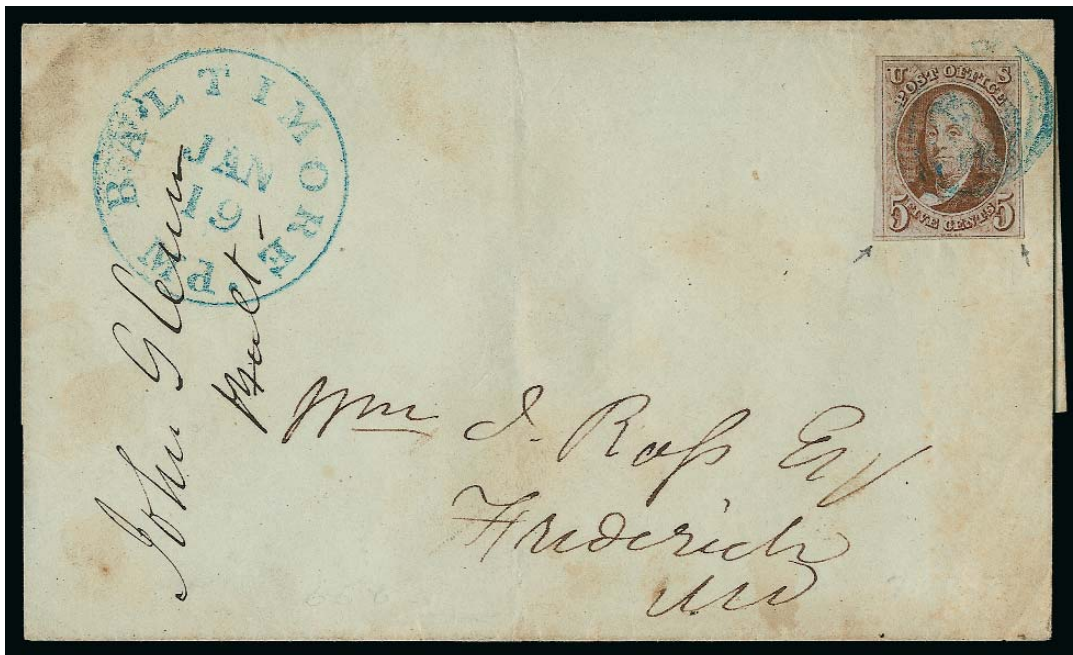 BALTIMORE. Md
JAN
19
U S
POST OFFICE
5 FIVE CENTS 5
John Glenn
Balt -
Wm J. Ross Esq
Frederick
Md